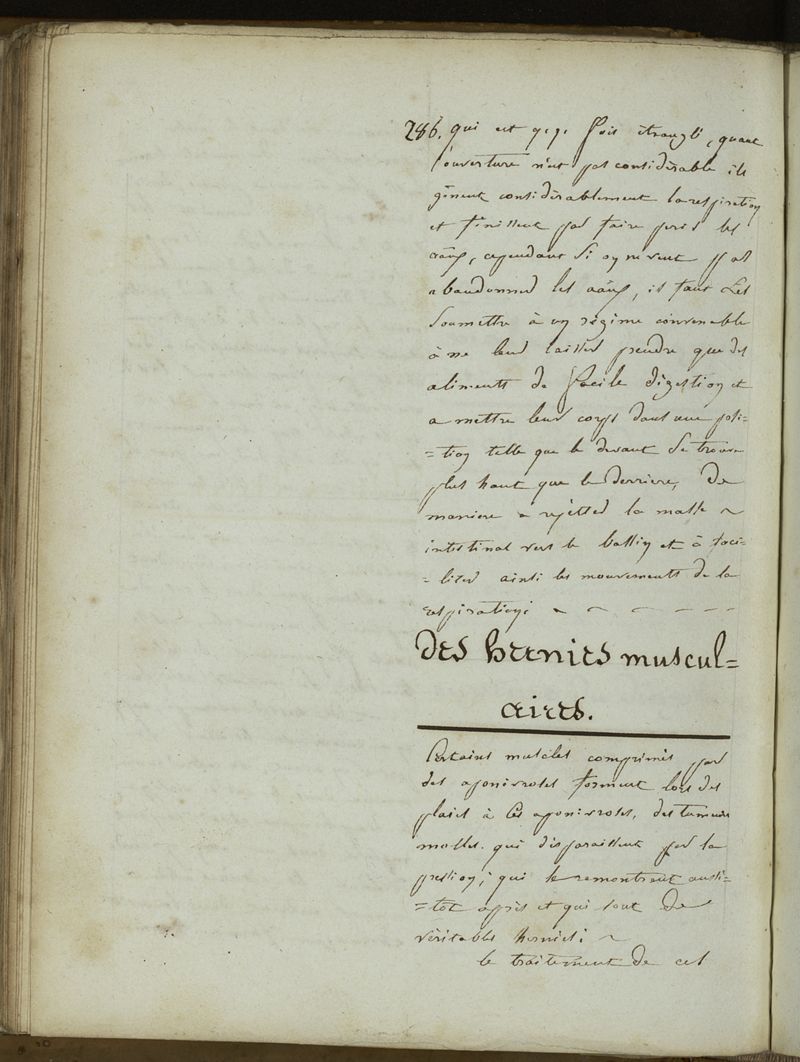 286. qui est q.q. fois étranglé, quant
l'ouverture n'est pas considérable ils
gênent considérablement la respiration
et finissent par faire perir les
aâux, cependant si on ne veut pas
abandonner les aâux, il faut les
soumettre à un régime convenable
à ne leur laisser prendre que des
aliments de facile digestion et
a mettre leur corps dans une posi=
=tion telle que le devant se trouve
plus haut que le derriere, de
maniere a rejetter la masse ~
intestinal vers le bassin et à faci=
=liter ainsi les mouvements de la
respiration; ~ ~ ~ ~ ~ ~ ~
des hernies muscul=
aires.
Certains muscles comprimés par
des aponivroses forment lors des
plaies à ces aponivroses, des tumeurs
molles. qui disparaissent par la
pression; qui se remontrent aussi=
=tôt après et qui sont de
véritables hernies; ~
le traitement de ces